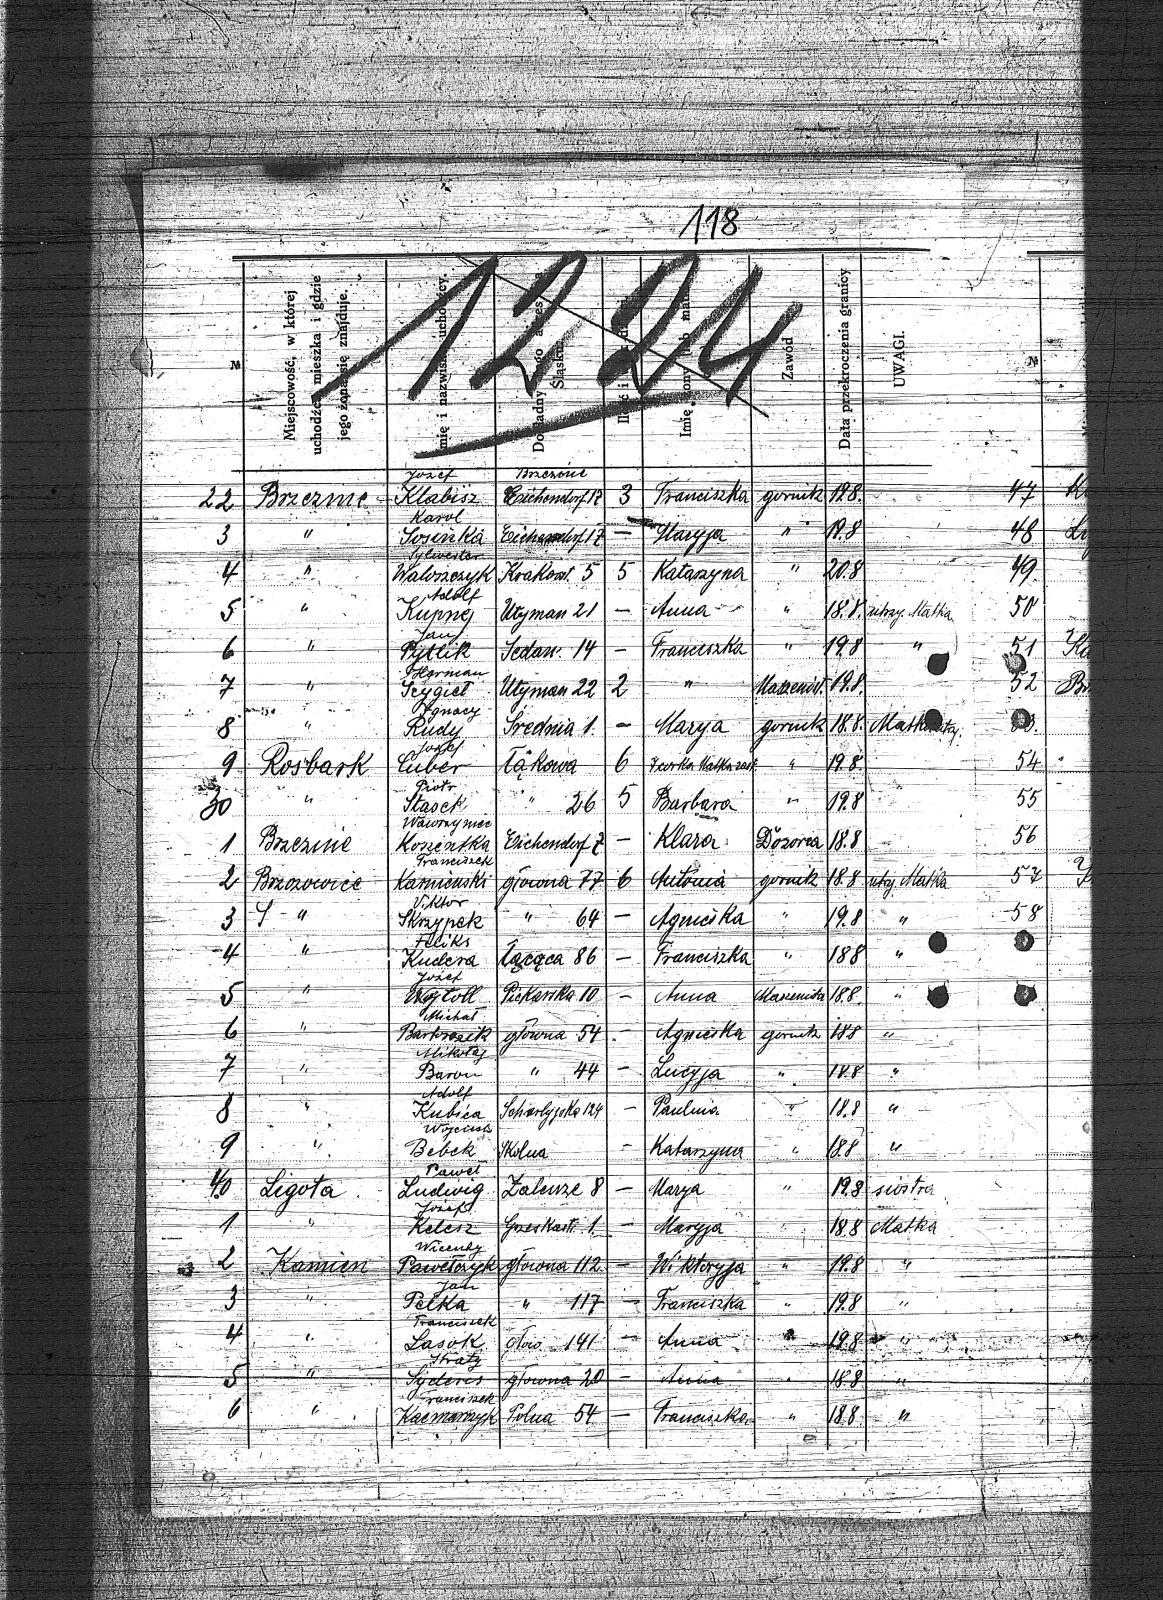 118
1224
№ Miejscowość, w której uchodźca mieszka i gdzie jego żona się znajduje. imię i nazwisko uchodźcy. Dokładny adres Śląsku Ilość i Imię żony lub matki Zawód Data przekroczenia granicy UWAGI. №
Józef Brzezinie
22 Brzezinie Klabisz Eichendorf 17 3 Franciszka gornik 19.8. 47
Karol
3 " Sosinka Eichendorf 17 — Maryja " 19.8 48
Sylwester
4 " Waloszczyk Krakow. 5 5 Katarzyna " 20.8 49
Adolf
5 " Kupny Utyman 21 — Anna " 18.8. utrzy. Matka 50
Jan
6 " Pytlik Sedan. 14 — Franciszka " 19.8 " 51
Herman
7 " Scygiel Utyman 22 2 " Maszenist. 19.8. 52
Ignacy
8 " Rudy Srednia 1. — Marya gornik 18.8.
Józef
9 Rosbark Cuber Łąkowa 6 " 19.8 54
Piotr
30 " Stasek " 26 5 Barbara " 19.8 55
Wawrzyniec
1 Brzezinie Koszentka Eichendorf 7 — Klara Dozorca 18.8 56
Franciszek
2 Brzozowice Kamienski głowna 77 6 Antonia gornik 18.8 utrzy. Matka 57
Viktor
3 " Skrzypek " 64 — Agnieska " 19.8 " 58
Feliks
4 " Kudera Łącąca 86 — Franciszka " 18.8 "
Józef
5 " Wojtoll Piekarska 10 — Anna Maszenista 18.8. "
Michał
6 " głowna 54 — Agnieska gornik 18.8 "
Mikołaj
7 " Baron " 44 — Lucyja " 18.8 "
Adolf
8 " Kubica 124 — Paulina " 18.8 "
9 " Bebek Skolna — Katarzyna " 18.8 "
Paweł
40 Ligota Ludwig Zalenze 8 — Marya " 19.8 siostra
Józef
1 " Kelesz 1. — Maryja " 18.8 Matka
Wicenty
2 Kamien Pawełczyk głowna 112 — Wiktoryja " 19.8 "
Jan
3 " Pelka " 117 — Franciszka " 19.8 "
Franciszek
4 " Lasok 141 — Anna " 19.8 "
5 " głowna 20 — Anna " 18.8 "
Franciszek
6 " Kacmarzyk Polna 54 — Franciszka " 18.8 "